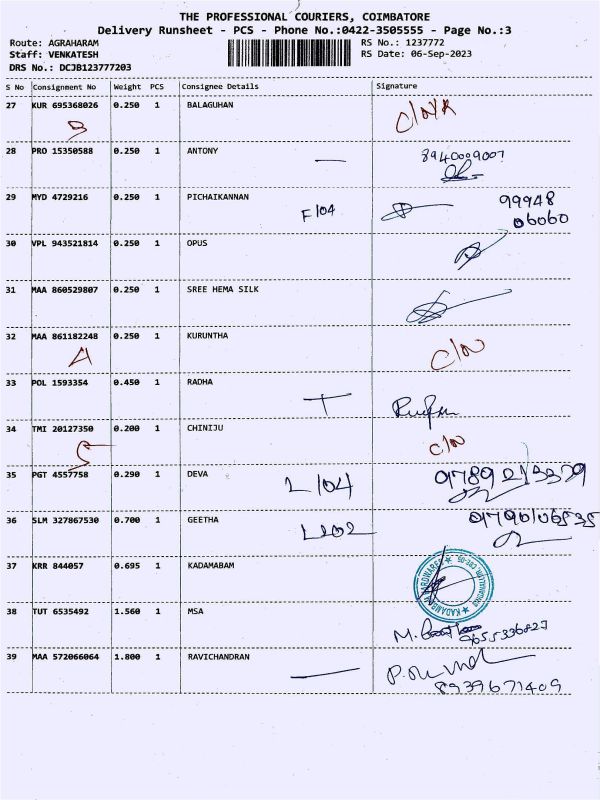 THE PROFESSIONAL COURIERS, COIMBATORE
Delivery Runsheet - PCS - Phone No.:0422-3505555 - Page No.:3
Route: AGRAHARAM
RS No.: 1237772
Staff: VENKATESH
RS Date: 06-Sep-2023
DRS No.: DCJB123777203
S No Consignment No Weight PCS Consignee Details Signature
27 KUR 695368026 0.250 1 BALAGUHAN
B
28 PRO 15350588 0.250 1 ANTONY 8940009007
29 MYD 4729216 0.250 1 PICHAIKANNAN F104 99948
06060
30 VPL 943521814 0.250 1 OPUS
31 MAA 860529807 0.250 1 SREE HEMA SILK
32 MAA 861182248 0.250 1 KURUNTHA C/N
A
33 POL 1593354 0.450 1 RADHA
34 TMI 20127350 0.200 1 CHINIJU C/N
35 PGT 4557758 0.290 1 DEVA L104
36 SLM 327867530 0.700 1 GEETHA L202
37 KRR 844057 0.695 1 KADAMABAM
38 TUT 6535492 1.560 1 MSA
M.
39 MAA 572066064 1.800 1 RAVICHANDRAN
8939671409